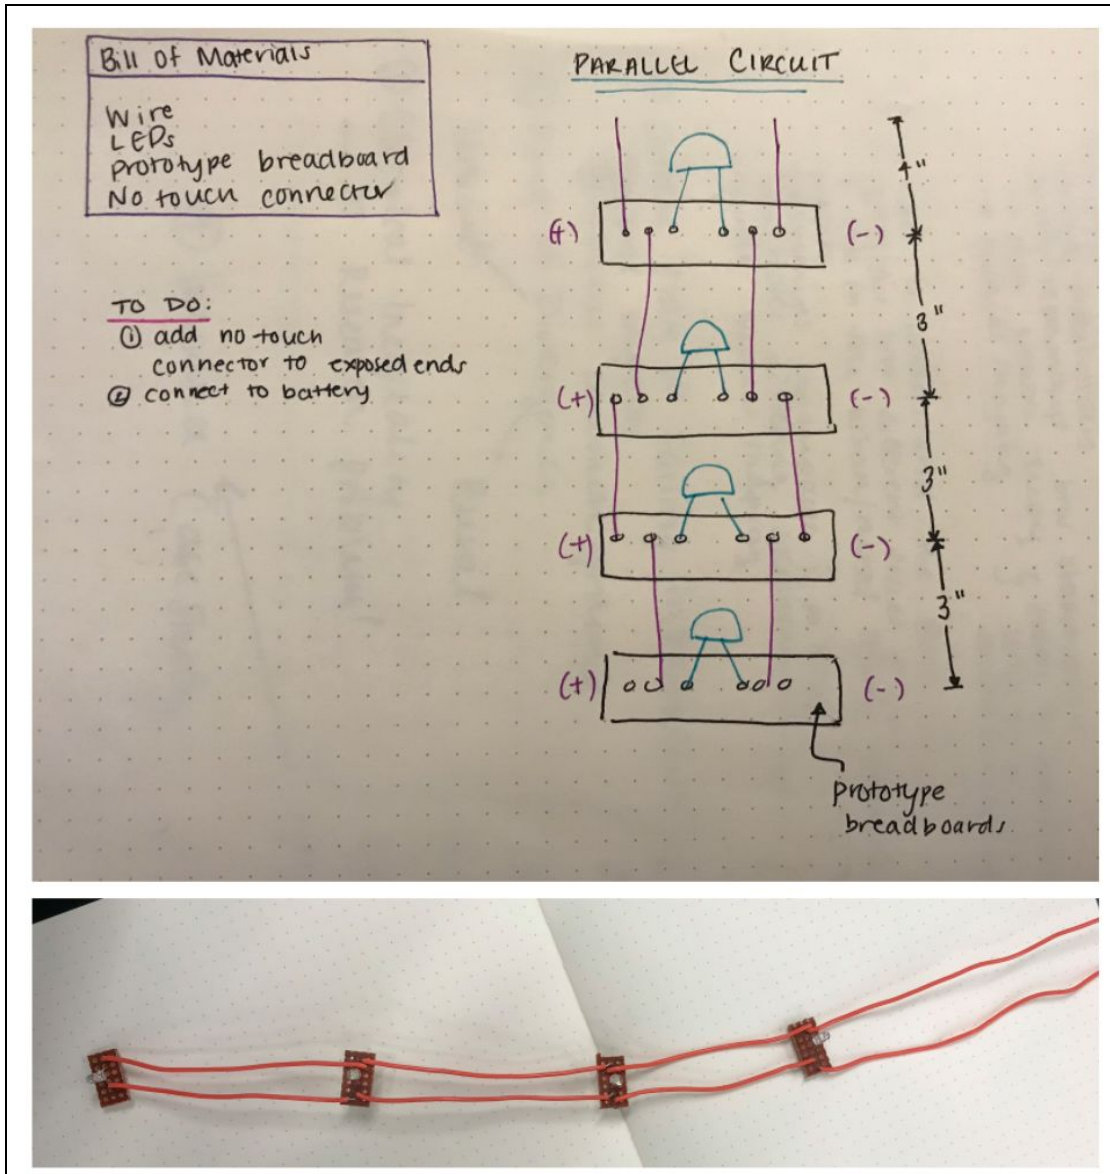 Bill Of Materials
Wire
LEDs
prototype breadboard
No touch connector
TO DO:
① add no touch
connector to exposed ends
② connect to battery
PARALLEL CIRCUIT
4"
(+) (-)
3"
(+) (-)
3"
(+) (-)
3"
(+) (-)
prototype
breadboards.